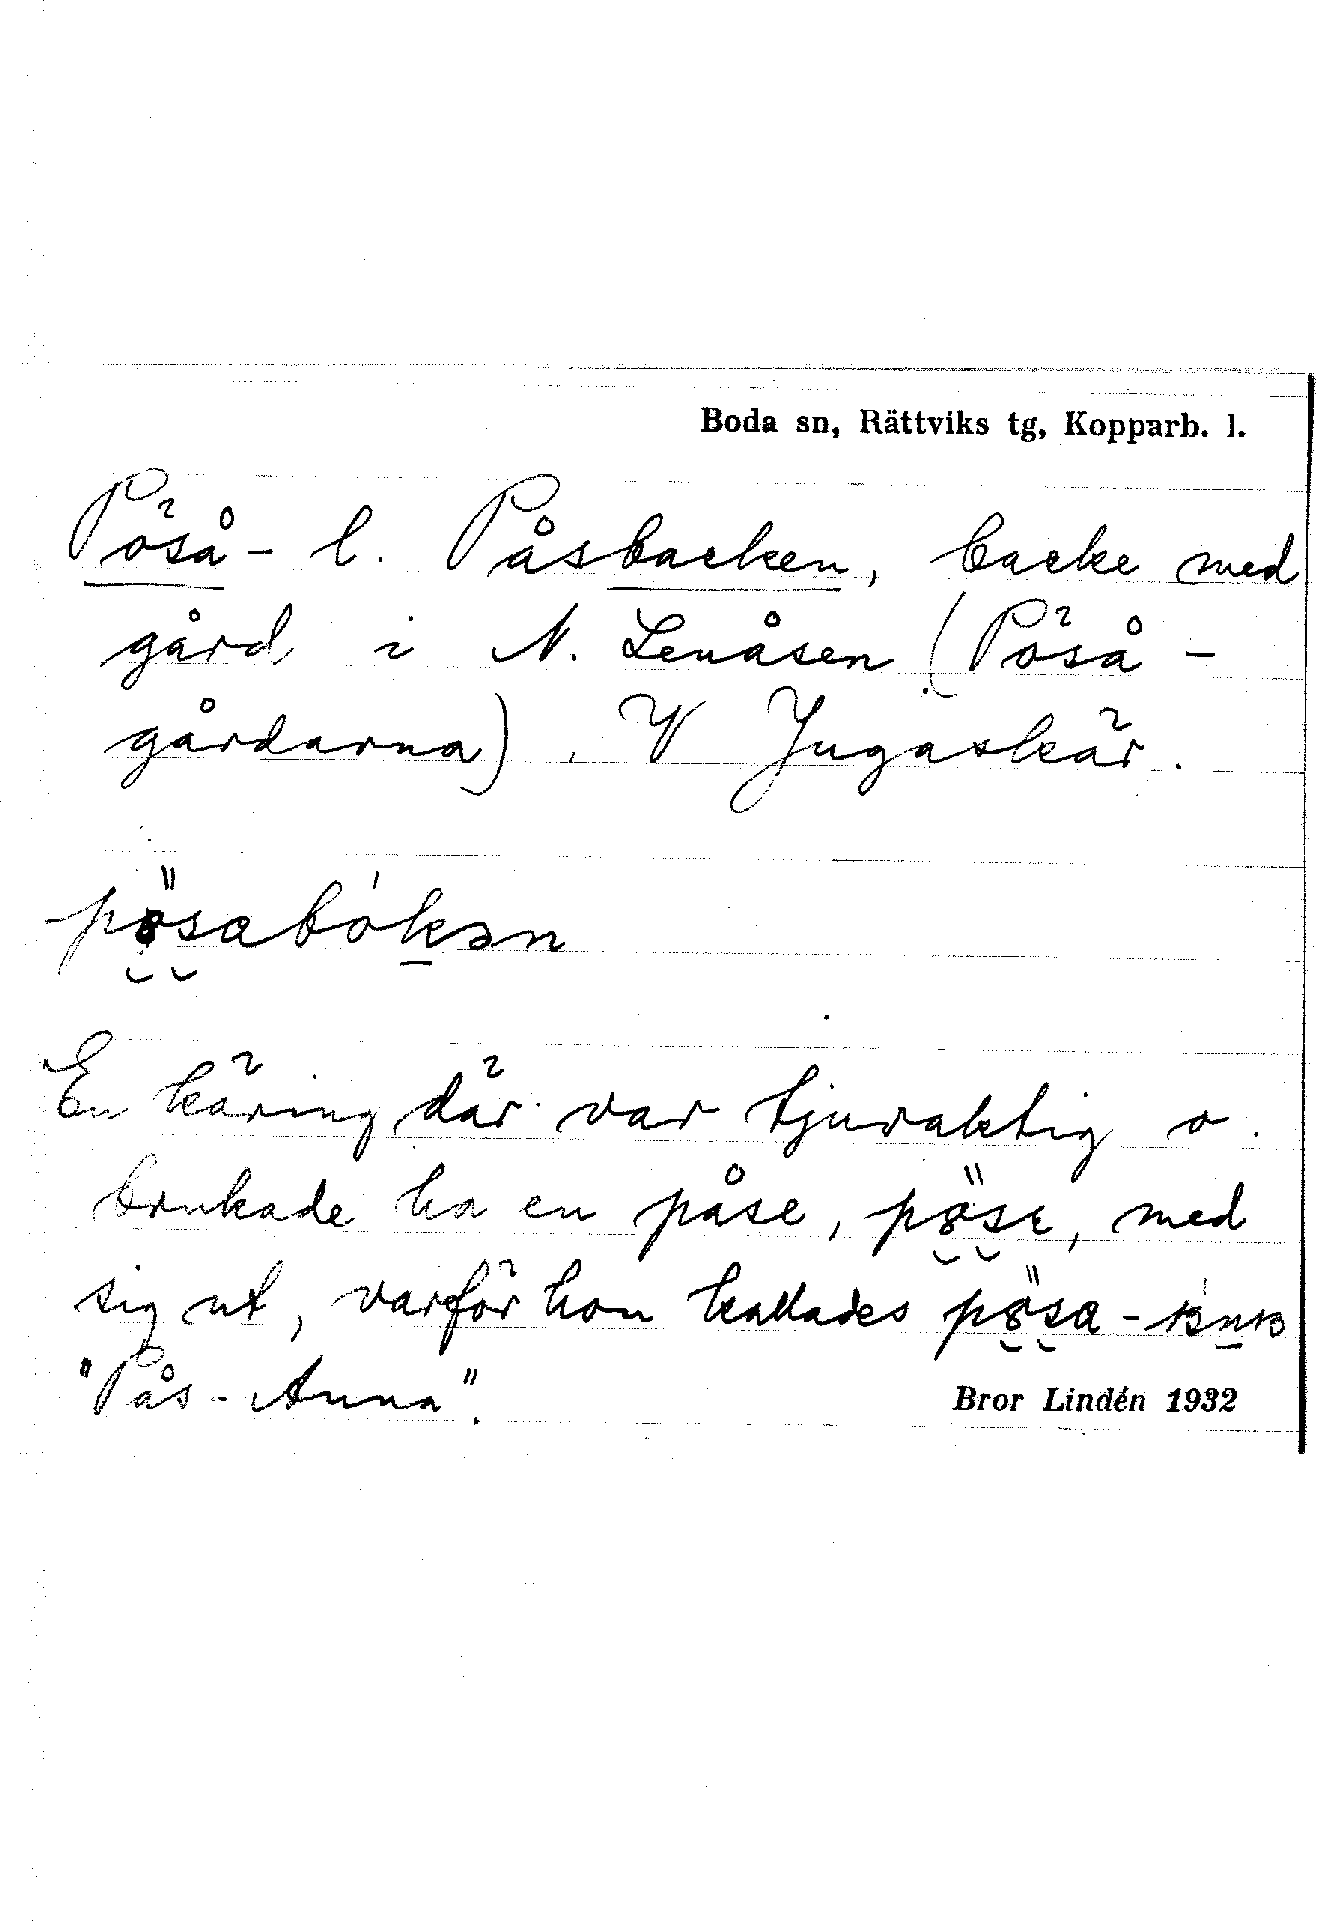 Boda sn, Rättviks tg, Kopparb. l.
Påså- l. Påsbacken, backe med
gård i N. Lenåsen (Pöså-
gårdarna). V Jugaskär.
pösabókən
En käring där var tjuraktig o.
brukade ha en påse, pöse, med
sig ut, varför hon kallades pösa-
"Pås-Anna".
Bror Lindén 1932